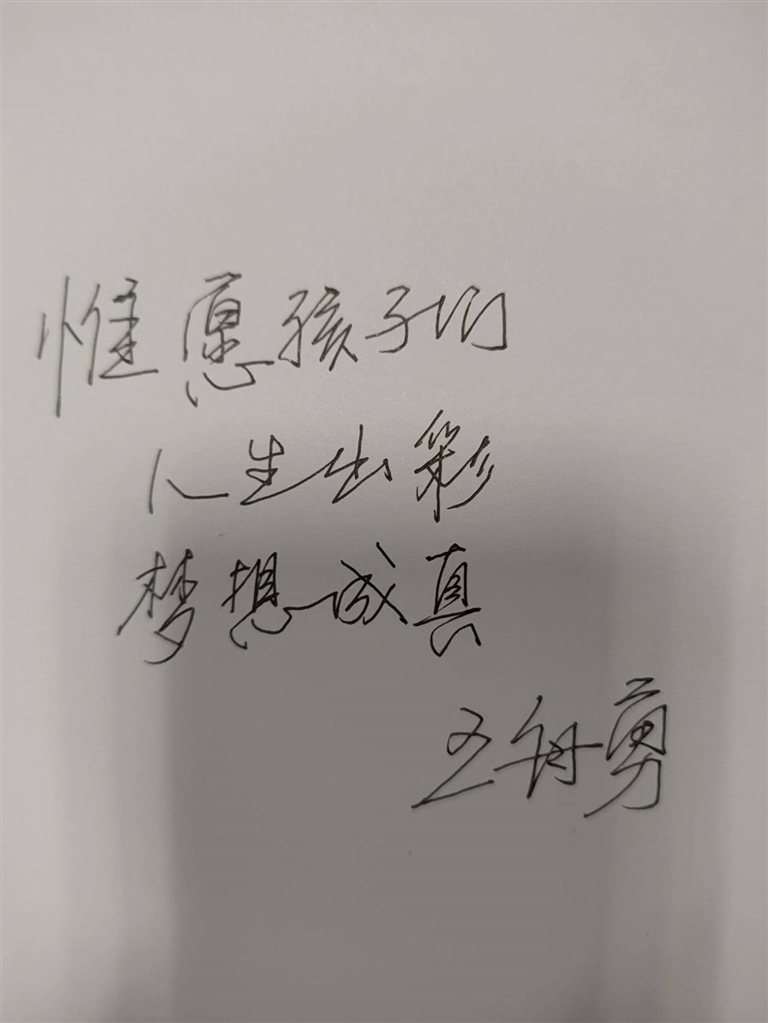 惟愿孩子们
人生出彩
梦想成真
王舟勇